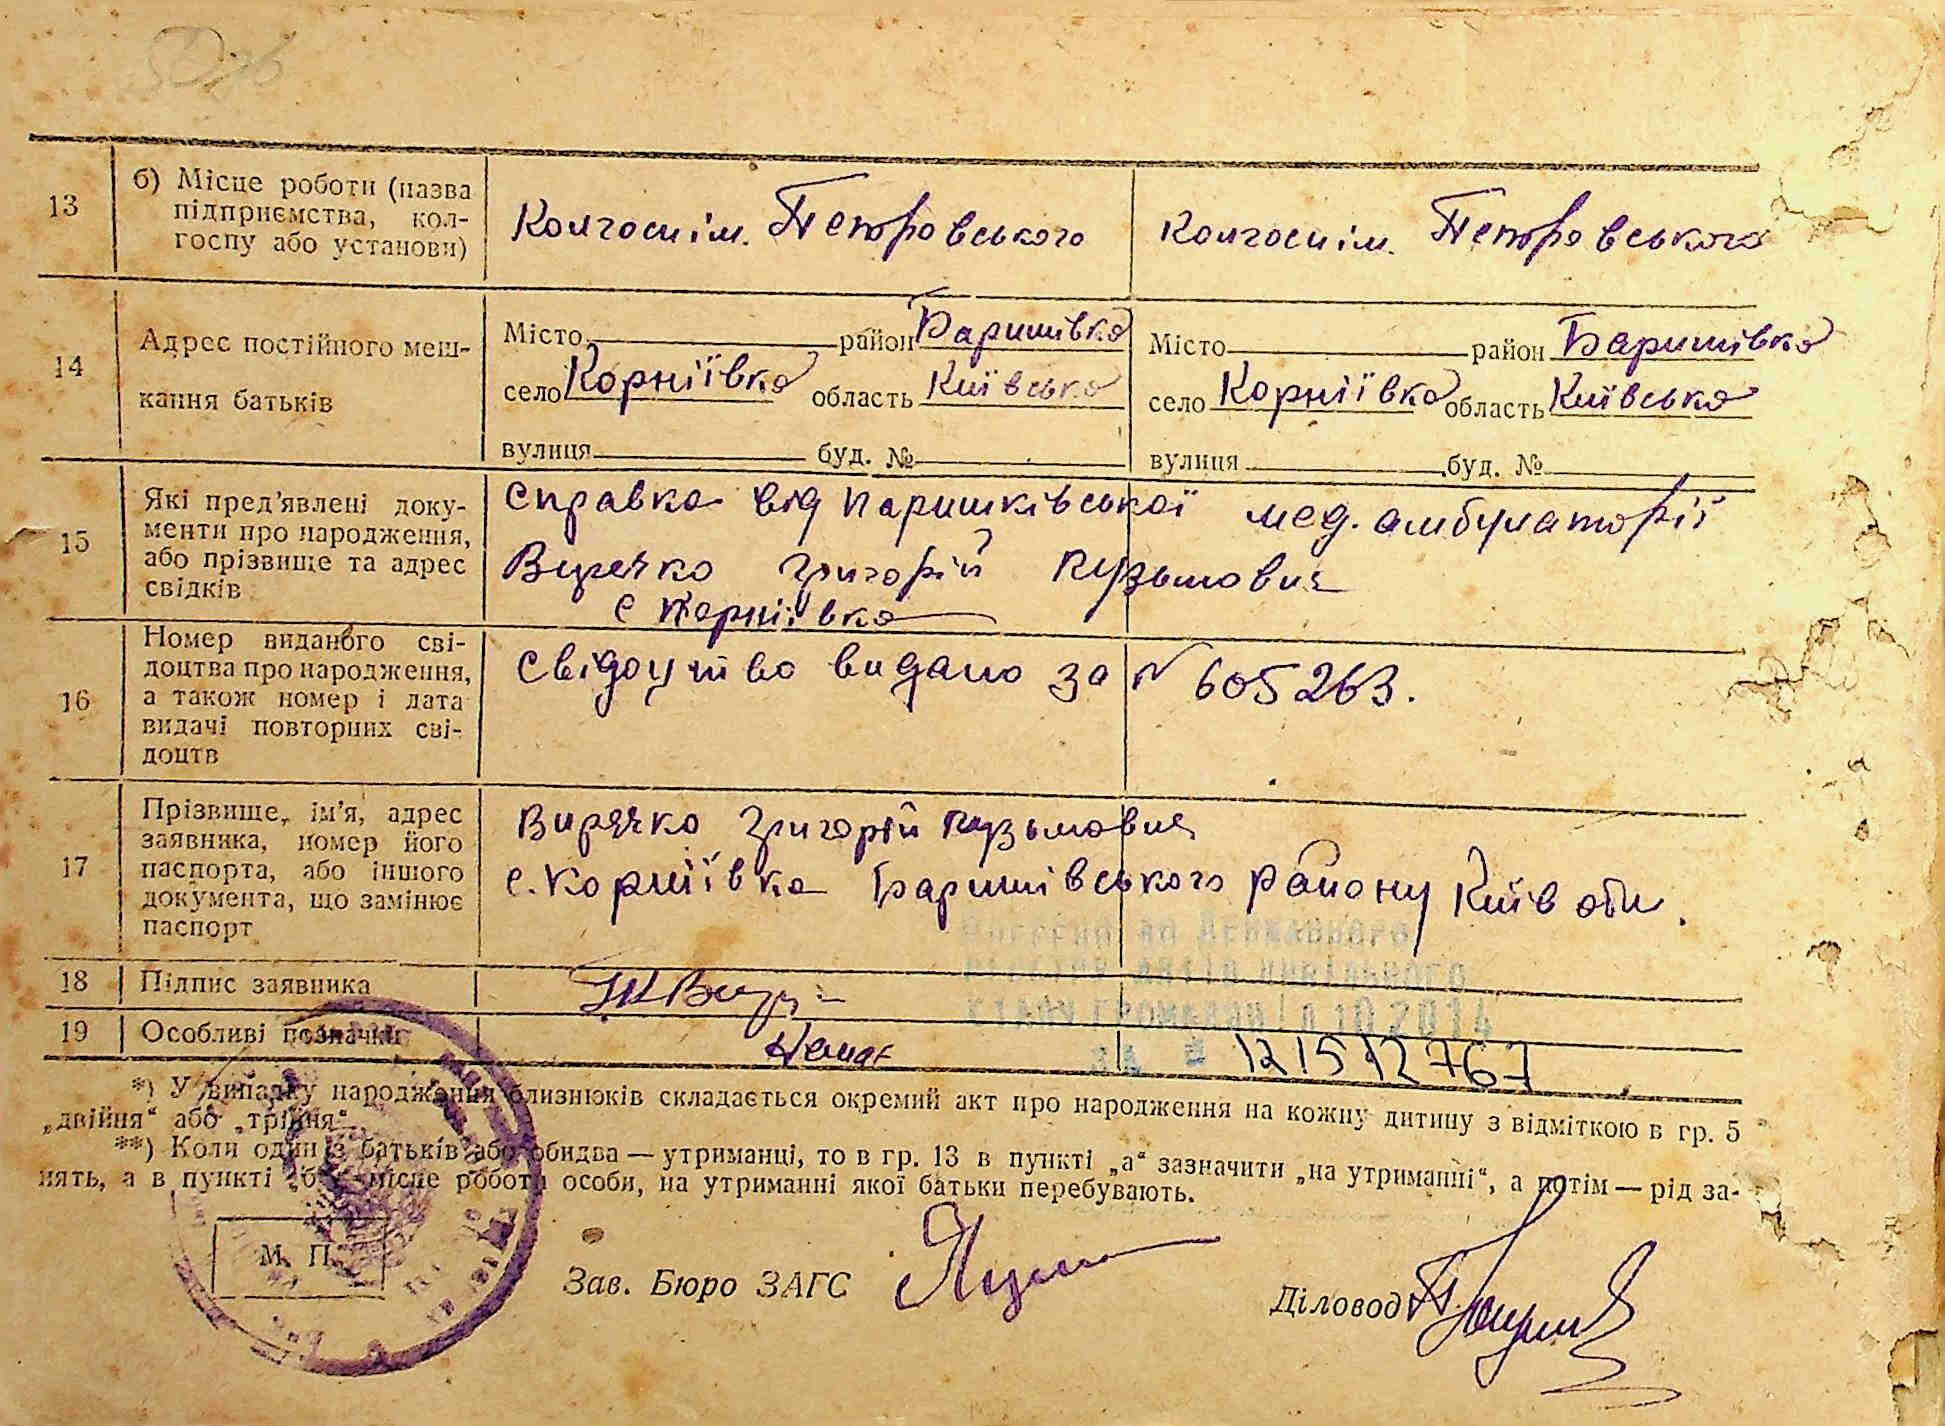 13
б) Місце роботи (назва
підприємства, кол-
госпу або установи)
Колгосп ім. Петровського
Колгосп ім. Петровського
14
Адрес постійного меш-
кання батьків
Місто район Баришівка
село Корніївка область Київська
вулиця буд. №
Місто район Баришівка
село Корніївка область Київська
вулиця буд. №
15
Які пред'явлені доку-
менти про народження,
або прізвище та адрес
свідків
Справка від Паришківської мед. амбулаторії
Вирячко Григорій Кузьмович
с Корніївка
16
Номер виданого сві-
доцтва про народження,
а також номер і дата
видачі повторних сві-
доцтв
Свідоцтво видано за № 605263.
17
Прізвище, ім'я, адрес
заявника, номер його
паспорта, або іншого
документа, що замінює
паспорт
Вирячко Григорій Кузьмович
с. Корніївка Баришівського району Київ обл.
Внесено до Державного
реєстру актів цивільного
стану громадян 10 2014
18
Підпис заявника
19
Особливі позначки
Немає
за № 121512767
*) У випадку народження близнюків складається окремий акт про народження на кожну дитину з відміткою в гр. 5
„двійня“ або „трійня“.
**) Коли один із батьків або обидва — утриманці, то в гр. 13 в пункті „а“ зазначити „на утриманні“, а потім — рід за-
нять, а в пункті „б“ місце роботи особи, на утриманні якої батьки перебувають.
М. П.
Зав. Бюро ЗАГС
Діловод